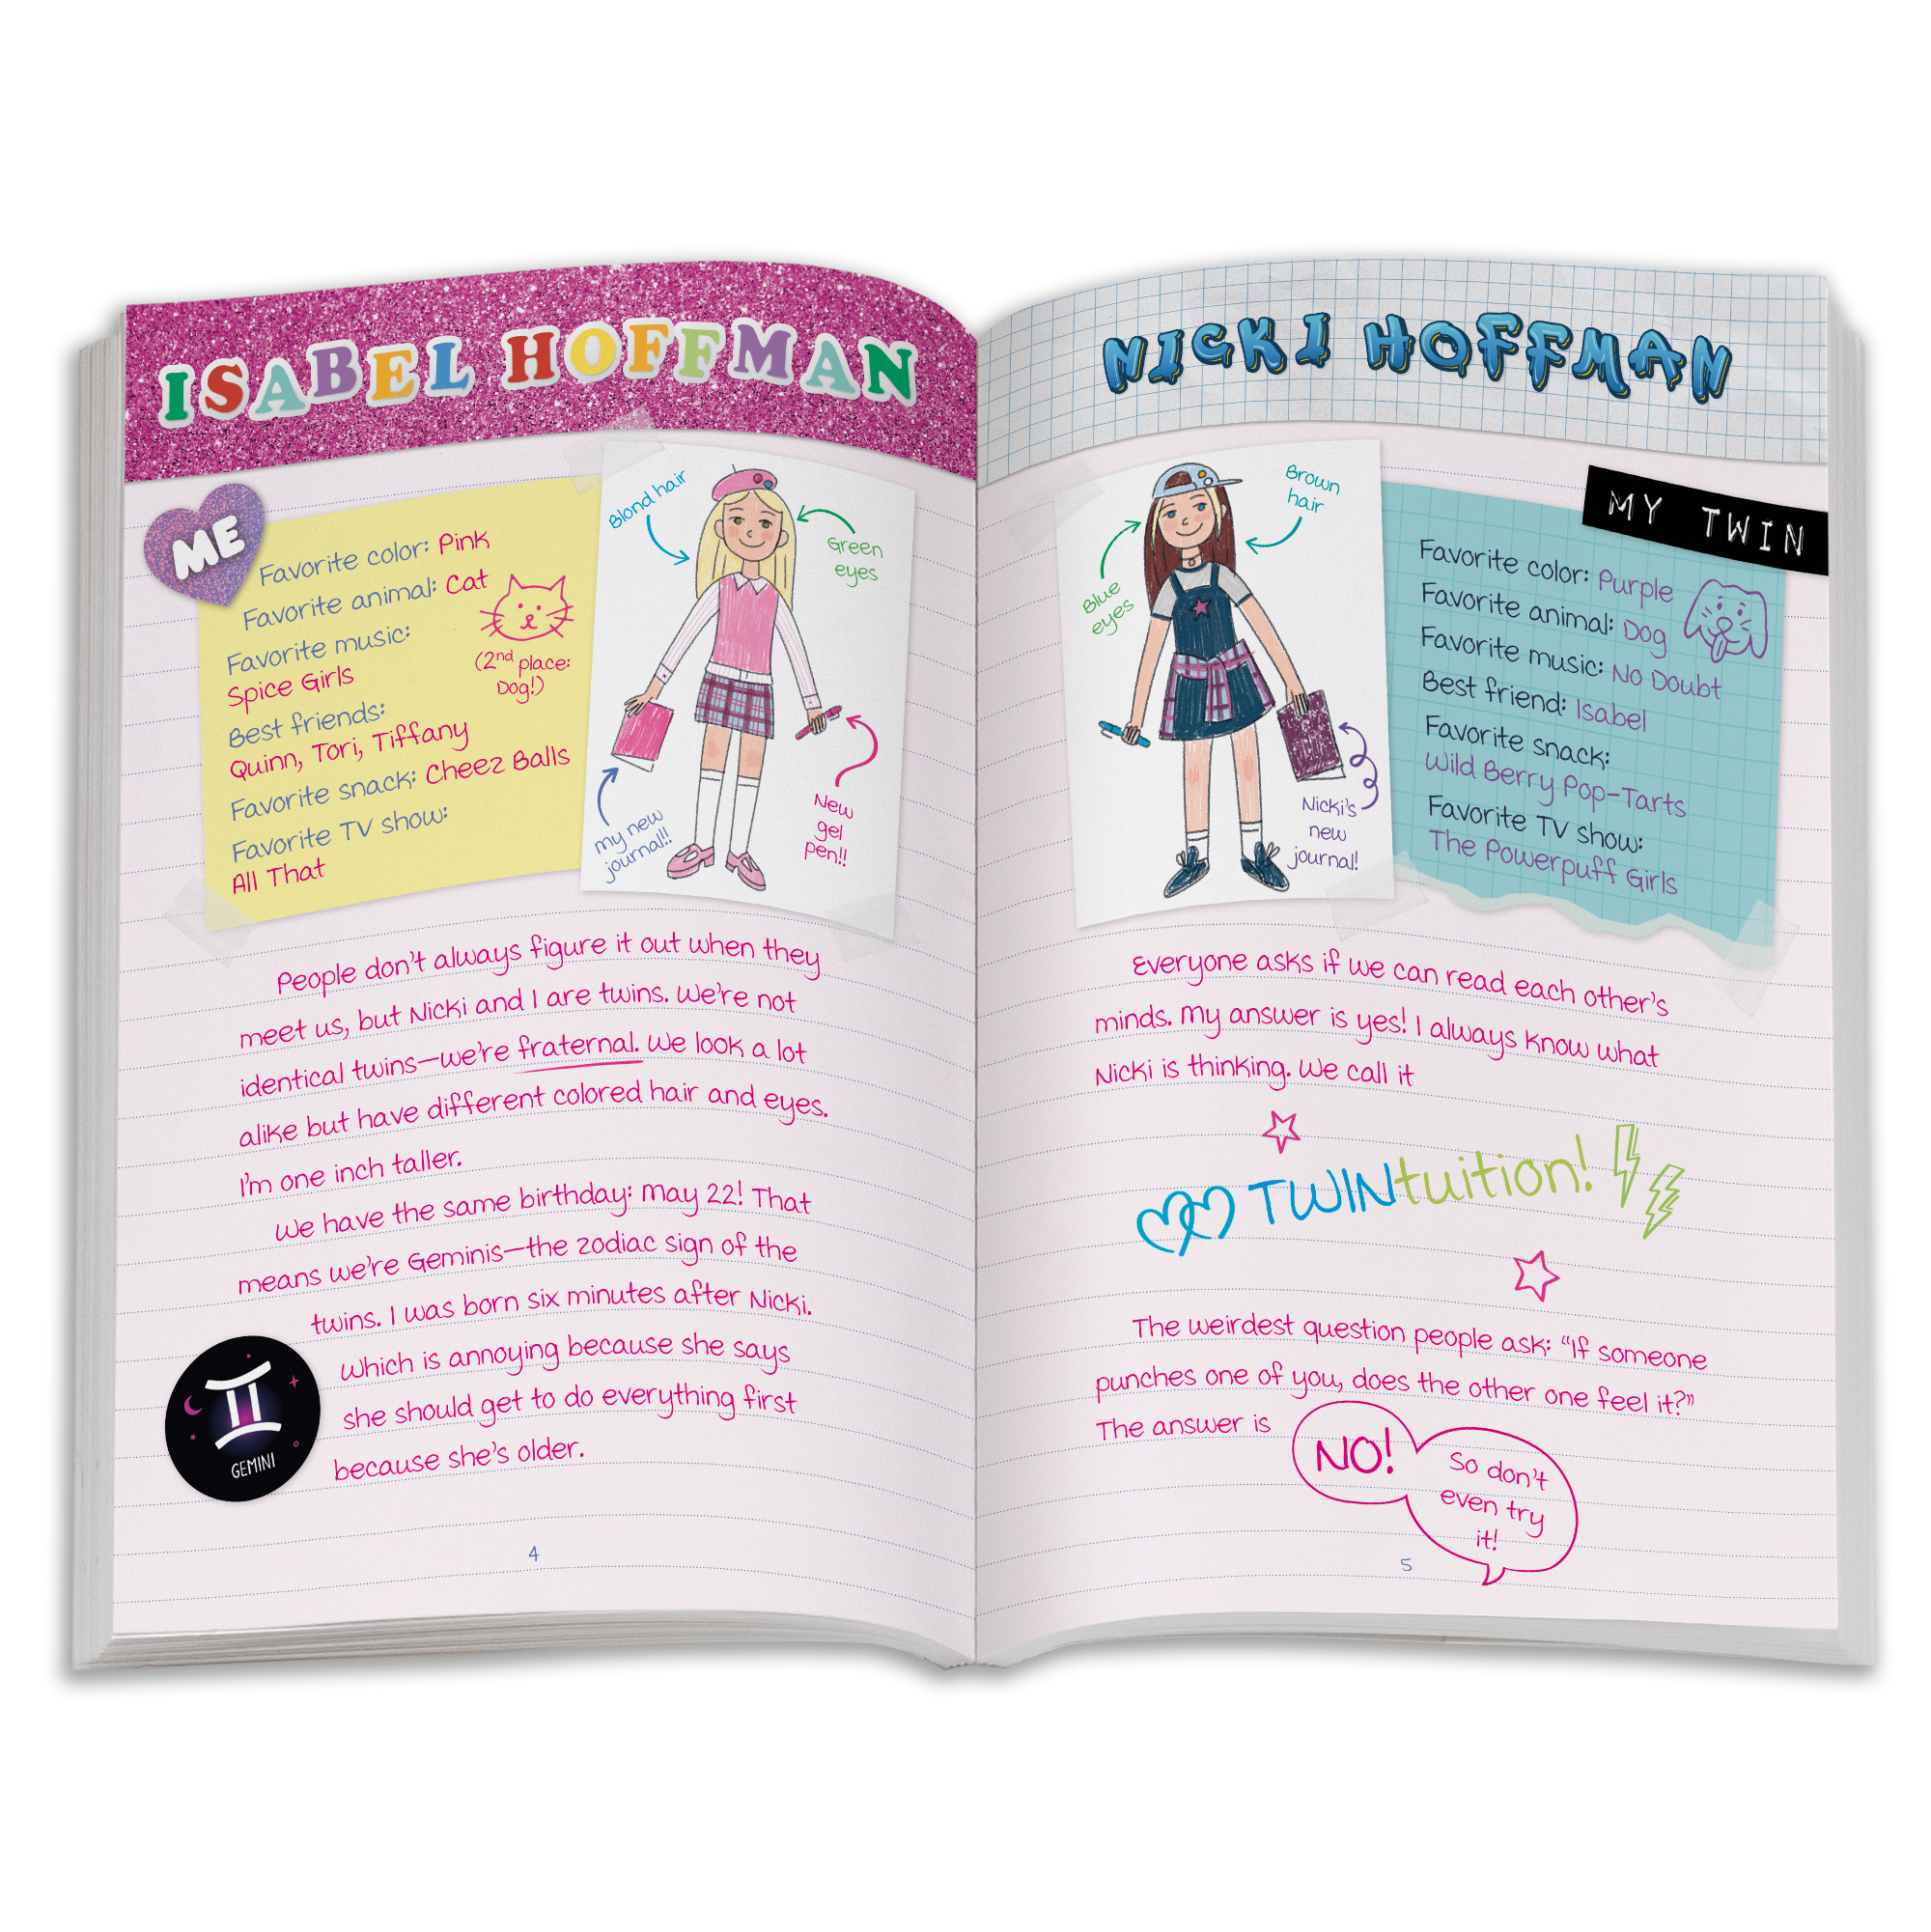 ISABEL HOFFMAN
ME
Favorite color: Pink
Favorite animal: Cat
Favorite music:
Spice Girls
(2nd place:
Dog!)
Best friends:
Quinn, Tori, Tiffany
Favorite snack: Cheez Balls
Favorite TV show:
All That
Blond hair
Green
eyes
my new
journal!!
New
gel
pen!!
People don't always figure it out when they
meet us, but Nicki and I are twins. We're not
identical twins—we're fraternal. We look a lot
alike but have different colored hair and eyes.
I'm one inch taller.
We have the same birthday: May 22! That
means we're Geminis—the zodiac sign of the
twins. I was born six minutes after Nicki.
Which is annoying because she says
she should get to do everything first
because she's older.
GEMINI
4
NICKI HOFFMAN
Brown
hair
Blue
eyes
Nicki's
new
journal!
MY TWIN
Favorite color: Purple
Favorite animal: Dog
Favorite music: No Doubt
Best friend: Isabel
Favorite snack:
Wild Berry Pop-Tarts
Favorite TV show:
The Powerpuff Girls
Everyone asks if we can read each other's
minds. My answer is yes! I always know what
Nicki is thinking. We call it
TWINtuition!
The weirdest question people ask: “If someone
punches one of you, does the other one feel it?”
The answer is
NO!
So don't
even try
it!
5